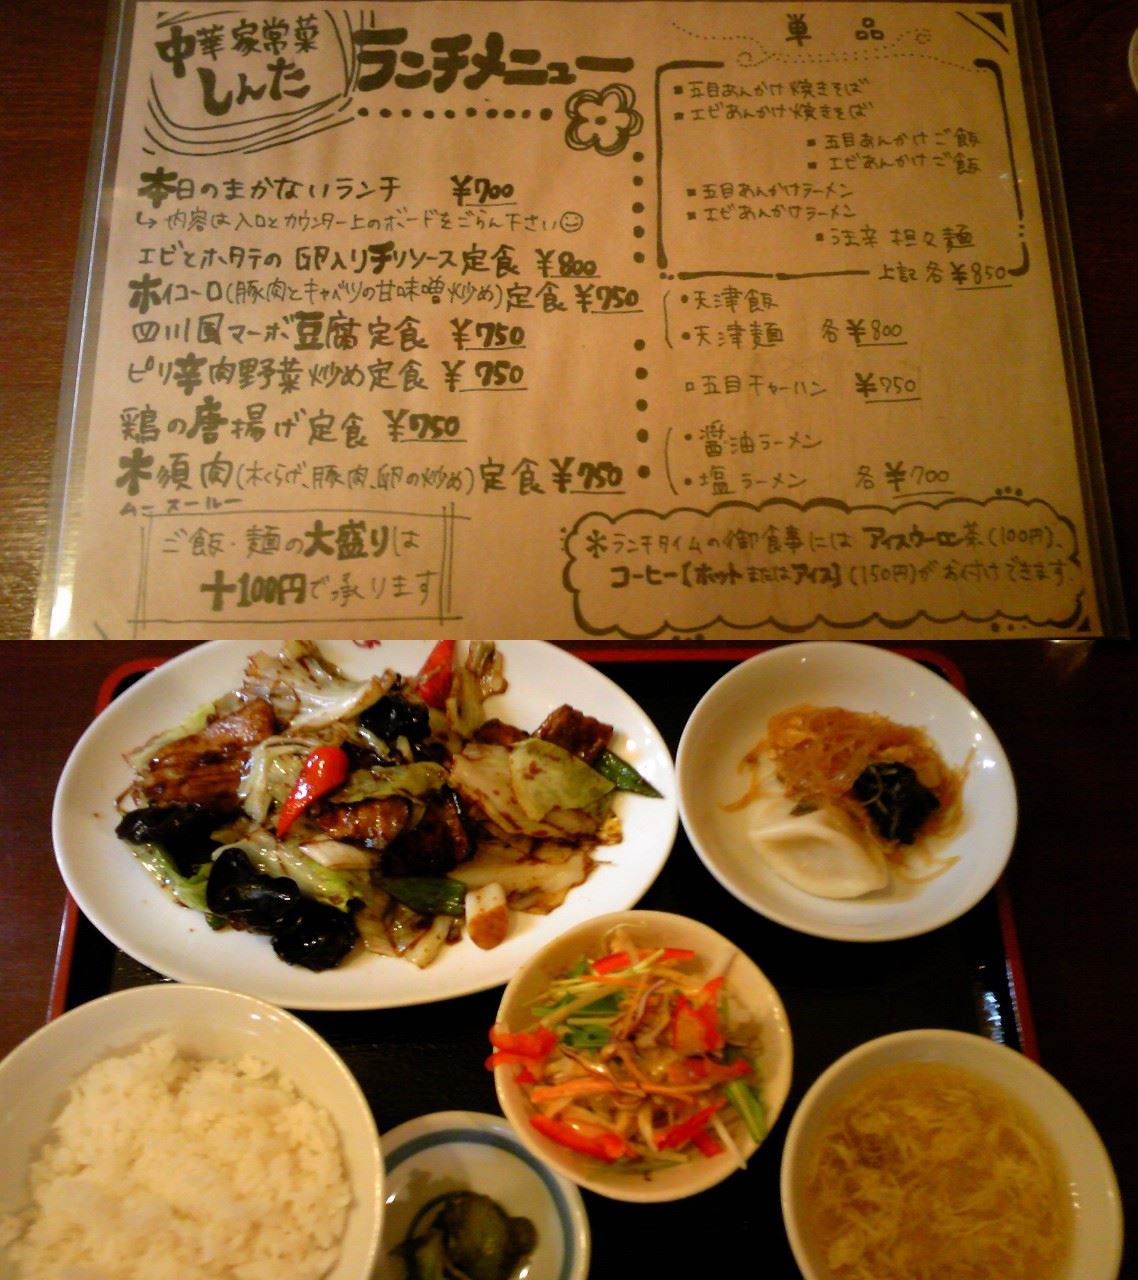 中華家常菜
しんた
ランチメニュー
本日のまかないランチ ¥700
↳ 内容は入口とカウンター上のボードをごらん下さい☺
エビとホタテの卵入りチリソース定食 ¥800
ホイコーロ(豚肉とキャベツの甘味噌炒め)定食 ¥750
四川風マーボ豆腐定食 ¥750
ピリ辛肉野菜炒め定食 ¥750
鶏の唐揚げ定食 ¥750
木須肉(木くらげ、豚肉、卵の炒め)定食 ¥750
ムースールー
ご飯・麺の大盛りは
+100円で承ります
単品
■五目あんかけ焼きそば
■エビあんかけ焼きそば
■五目あんかけご飯
■エビあんかけご飯
■五目あんかけラーメン
■エビあんかけラーメン
■汁辛担々麺
上記各¥850
•天津飯
•天津麺 各¥800
□五目チャーハン ¥750
•醤油ラーメン
•塩ラーメン 各¥700
＊ランチタイムの御食事には アイスウーロン茶(100円)、
コーヒー[ホットまたはアイス](150円)がお付けできます。